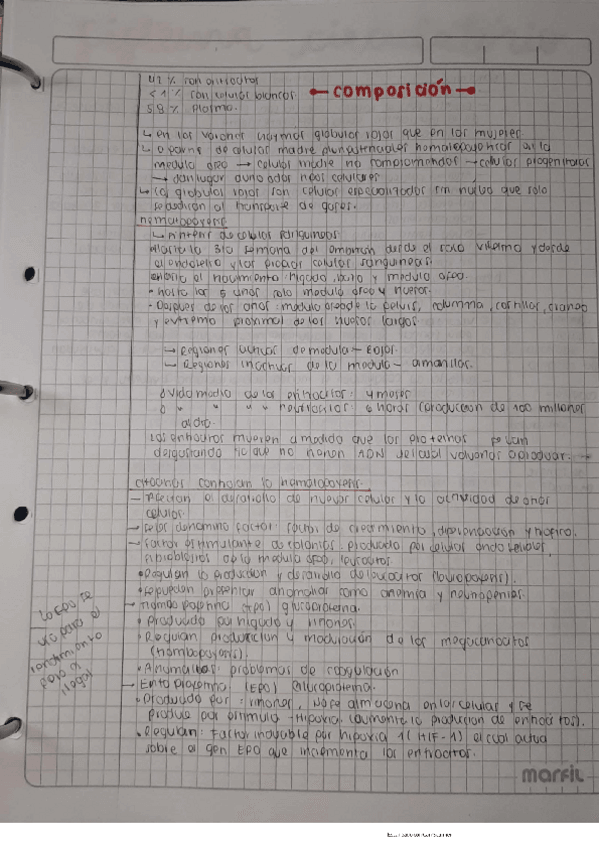 42 % son eritrocitos
<1 % son celulas blancas
composición
58 % plasma.
↳ en los varones hay mas globulos rojos que en las mujeres
de celulas madre pluripotenciales hematopoyeticas en la
medula osea → celulas madre no comprometidas → celulas progenitoras
→ dan lugar a unos tipos celulares
↳ los globulos rojos son celulas especializadas sin nucleo que solo
se dedican al transporte de gases.
hematopoyesis
↳ sintesis de celulas sanguineas
Hasta la 3ra semana del embrion desde el saco vitelino y desde
el endotelio y las propias celulas sanguineas.
el nacimiento higado, bazo y medula osea.
• hasta los 5 años solo medula osea y huesos.
• Despues de los años: medula osea de la pelvis, columna, costillas, craneo
y extremo proximal de los huesos largos
→ Regiones activas de medula – rojas.
→ Regiones inactivas de la medula – amarillas.
vida media de los eritrocitos: 4 meses
" " " " neutrofilos: 6 horas (produccion de 100 millones
al dia.
Los eritrocitos mueren a medida que las proteinas se van
desgastando ya que no tienen ADN del cual volverlas a producir. →
citocinas controlan la hematopoyesis.
– Afectan el desarrollo de nuevas celulas y la actividad de otras
celulas.
→ se los denomina factor: factor de crecimiento, diferenciacion y trofico.
→ factor estimulante de colonias: producido por celulas endoteliales,
fibroblastos de la medula osea, leucocitos.
• Regulan la produccion y desarrollo de leucocitos (leucopoyesis).
• se pueden presentar anomalias como anemia y neutropenias.
→ trombopoyetina (TPO) glucoproteina.
• Producida por higado y riñones.
• Regulan produccion y maduracion de los megacariocitos
(trombopoyesis).
• Anomalias: problemas de coagulación
→ Eritropoyetina (EPO) Glucoproteina.
• Producida por: riñones, No se almacena en las celulas y se
produce por estimulo – Hipoxia. (aumenta la produccion de eritrocitos).
• Regulan: Factor inducible por hipoxia 1 (HIF-1) el cual actua
sobre el gen EPO que incrementa los eritrocitos.
La EPO se
usa para el
rendimiento
marfil